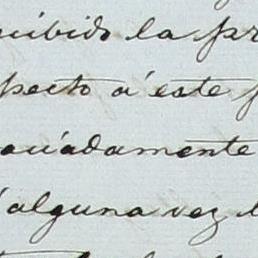 cibido la pr
pecto á este p
uádamente
alguna vez l